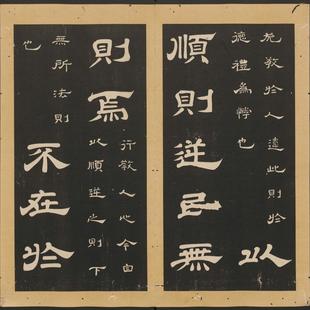 施教於人違此則於
德禮為悖也
以
順則逆民無
則焉
行教人心今自
以順逆之則下
無所法則
也
不在於